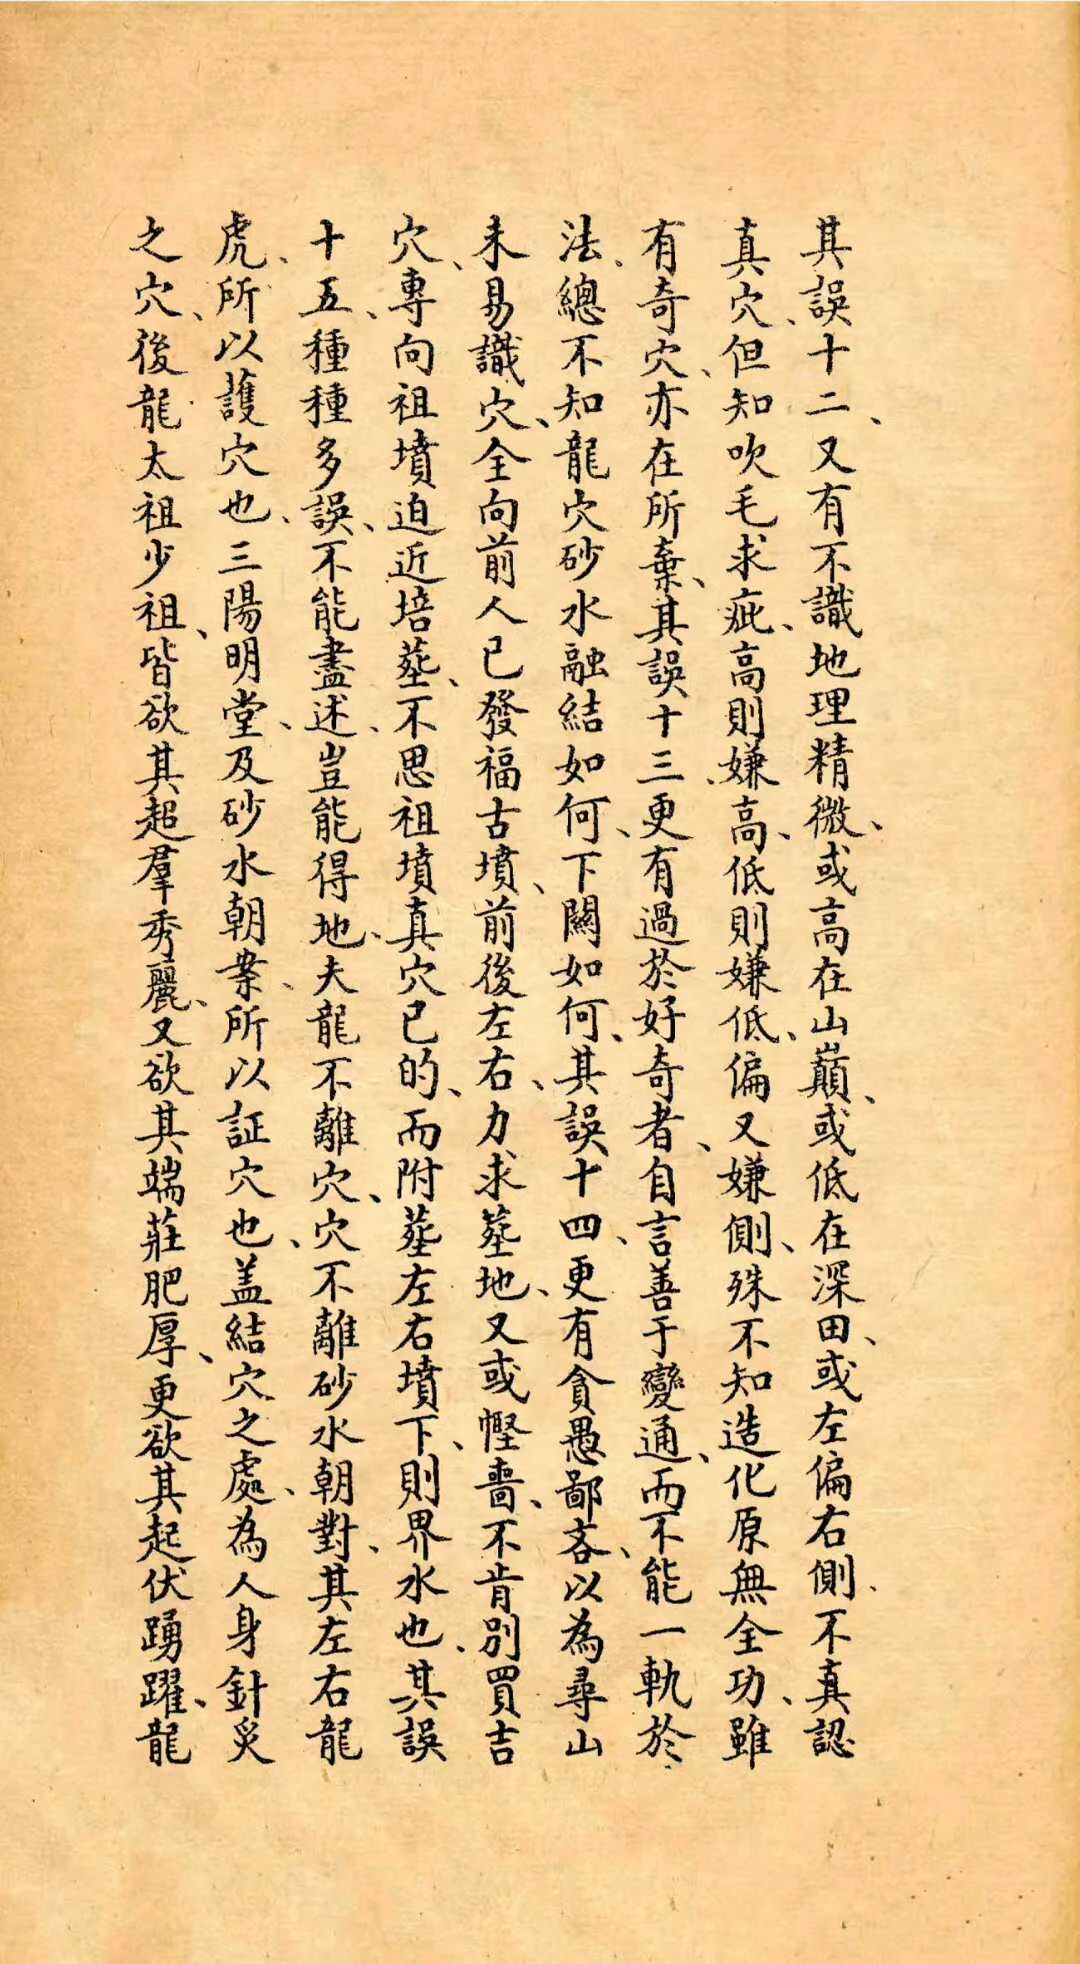 其誤十二、又有不識地理精微、或高在山巔、或低在深田、或左偏右側、不真認
真穴、但知吹毛求疵、高則嫌高、低則嫌低、偏又嫌側、殊不知造化原無全功、雖
有奇穴、亦在所棄、其誤十三、更有過於好奇者、自言善于變通、而不能一軌於
法、總不知龍穴砂水融結如何、下關如何、其誤十四、更有貪愚鄙吝、以為尋山
未易識穴、全向前人已發福古墳、前後左右、力求塟地、又或慳嗇、不肯別買吉
穴、專向祖墳迫近培塟、不思祖墳真穴已的、而附塟左右墳下、則界水也、其誤
十五、種種多誤、不能盡述、豈能得地、夫龍不離穴、穴不離砂水朝對、其左右龍
虎、所以護穴也、三陽明堂、及砂水朝案、所以証穴也、盖結穴之處、為人身針灸
之穴、後龍太祖少祖、皆欲其超羣秀麗、又欲其端莊肥厚、更欲其起伏踴躍、龍